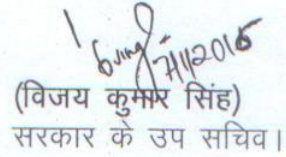 7/1/2015
(विजय कुमार सिंह)
सरकार के उप सचिव।